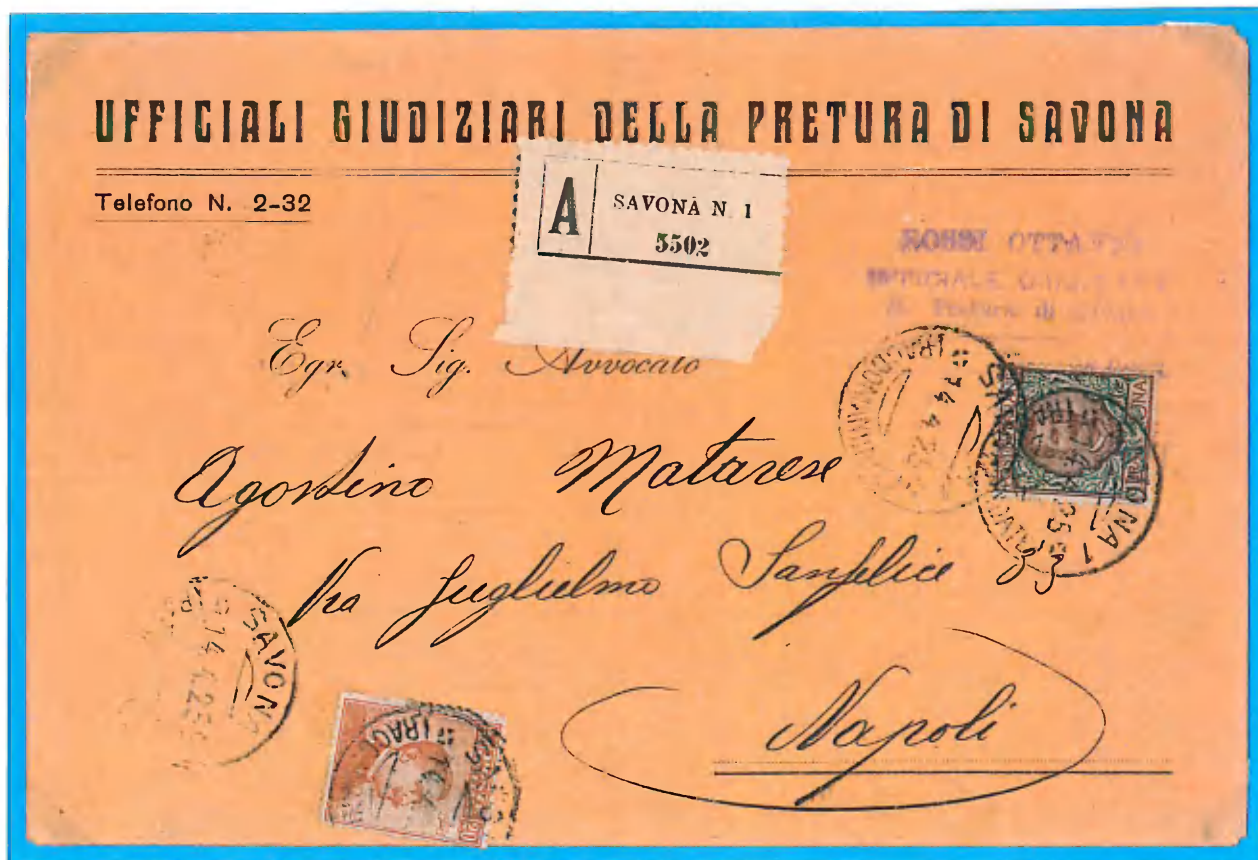 UFFICIALI GIUDIZIARI DELLA PRETURA DI SAVONA
Telefono N. 2-32
A
SAVONA N. 1
5502
ROSSI
Pretura di
Egr. Sig. Avvocato
Agostino Matarese
Via Guglielmo Sanfelice 33
Napoli
SAVONA 1
SAVONA
14 4 25